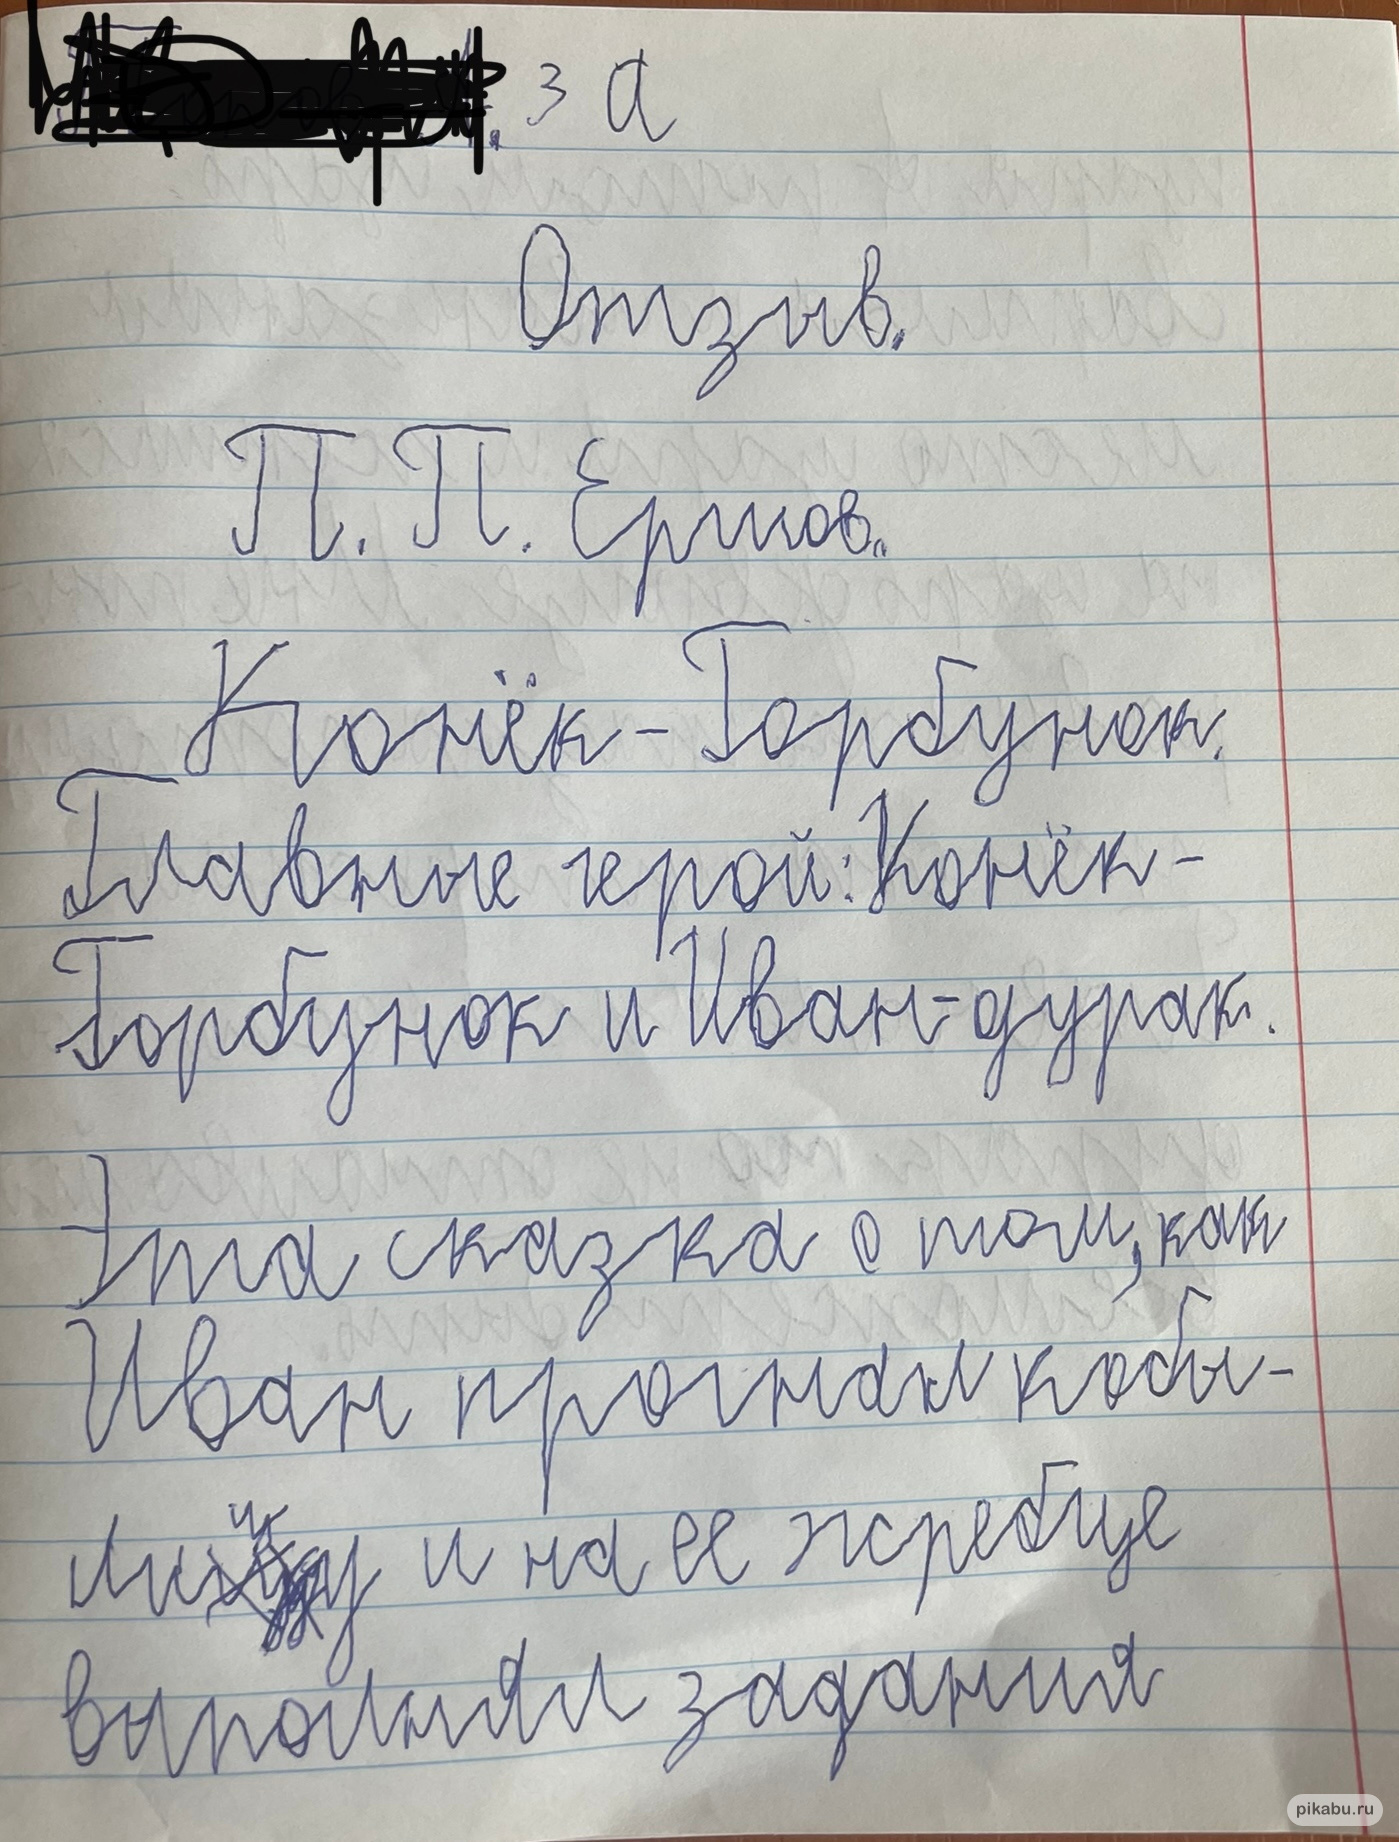 3 а
Отзыв.
П. П. Ершов.
Конёк-Горбунок.
Главные герой: Конёк-
Горбунок и Иван-дурак.
Эта сказка о том, как
Иван прогнал кобы-
лицу и на ее жребце
выполнял задания
pikabu.ru